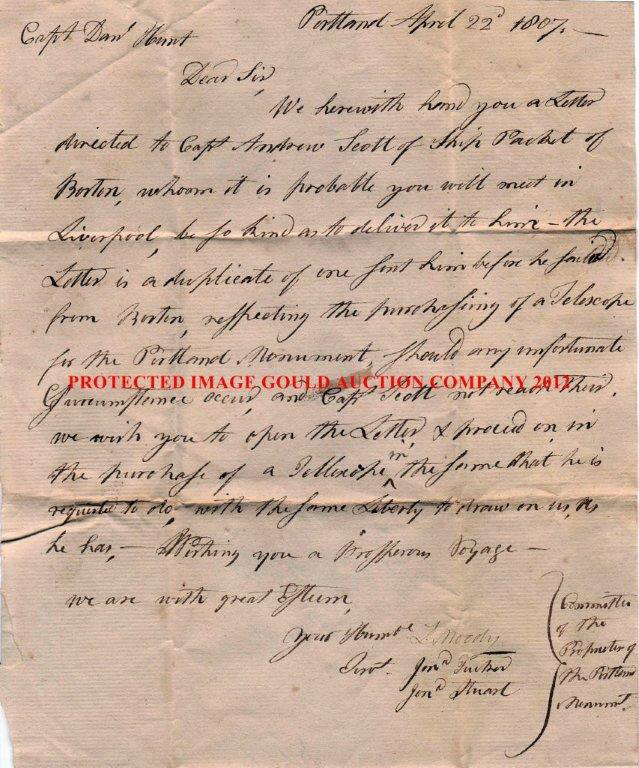 Portland April 22d 1807.—
Capt Danl Hunt
Dear Sir,
We herewith hand you a Letter
directed to Capt Andrew Scott of Ship Packet of
Boston, whoom it is probable you will meet in
Liverpool, be so kind as to deliver it to him — the
Letter is a duplicate of one sent him before he sailed
from Boston, respecting the purchasing of a Telescope
for the Portland Monument, should any unfortunate
PROTECTED IMAGE GOULD AUCTION COMPANY 2012
Circumstance occur, and Capt Scott not reach their,
we wish you to open the Letter, & proceed on in
the purchase of a Tellescope in the same that he is
requested to do, with the same Liberty to draw on us, as
he has, — Wishing you a Prosperous Voyage —
we are with great Esteem,
Your Humbe
Servt.
L Moody
Jona Tucker
Jona Stuart
Committee
of the
Proprietor of
the Portland
Monumt.